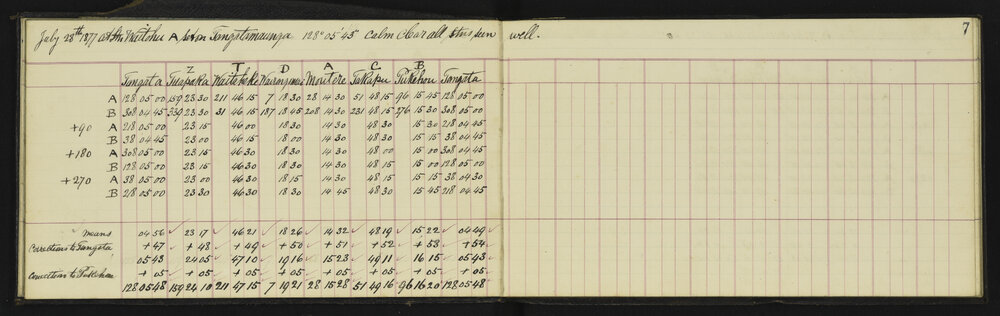 July 28th 1877 at Stn Waitohu A set on Tongatamaunga 128° 05' 45 Calm Clear all Stns seen well. 7
Z T D A C B
Tongata Tuapaka Waitohoke Moutere Takapu Pukehou Tongata
A 128 05 00 159 23 30 211 46 15 7 18 30 28 14 30 51 48 15 96 15 45 128 05 00
B 308 04 45 339 23 30 31 46 15 187 18 45 208 14 30 231 48 15 276 15 30 308 05 00
+90 A 218 05 00 23 15 46 00 18 30 14 30 48 30 15 30 218 04 45
B 38 04 45 23 00 46 15 18 00 14 30 48 30 15 15 38 04 45
+180 A 308 05 00 23 15 46 30 18 30 14 30 48 00 15 00 308 04 45
B 128 05 00 23 15 46 30 18 30 14 30 48 15 15 00 128 04 45
+270 A 38 05 00 23 30 46 30 18 15 14 30 48 15 15 15 38 04 30
B 218 05 00 23 30 46 30 18 30 14 45 48 30 15 45 218 04 45
means 04 56 23 17 46 21 18 26 14 32 48 19 15 22 04 49
Corrections to Tongata + 47 + 48 + 49 + 50 + 51 + 52 + 53 + 54
05 43 24 05 47 10 19 16 15 23 49 11 16 15 05 43
Corrections to Pukehou + 05 + 05 + 05 + 05 + 05 + 05 + 05 + 05
128 05 48 159 24 10 211 47 15 7 19 21 28 15 28 51 49 16 96 16 20 128 05 48